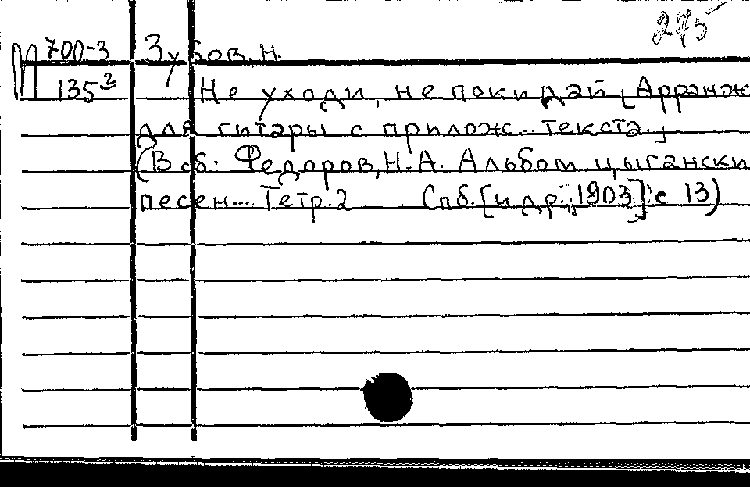 275
М 700-3 Зубов, Н.
135² Не уходи, не покидай [Арранж
для гитары с прилож. текста]
(В сб: Федоров, Н.А. Альбом цыгански
песен... Тетр. 2 Спб. [и др., 1903] с 13)